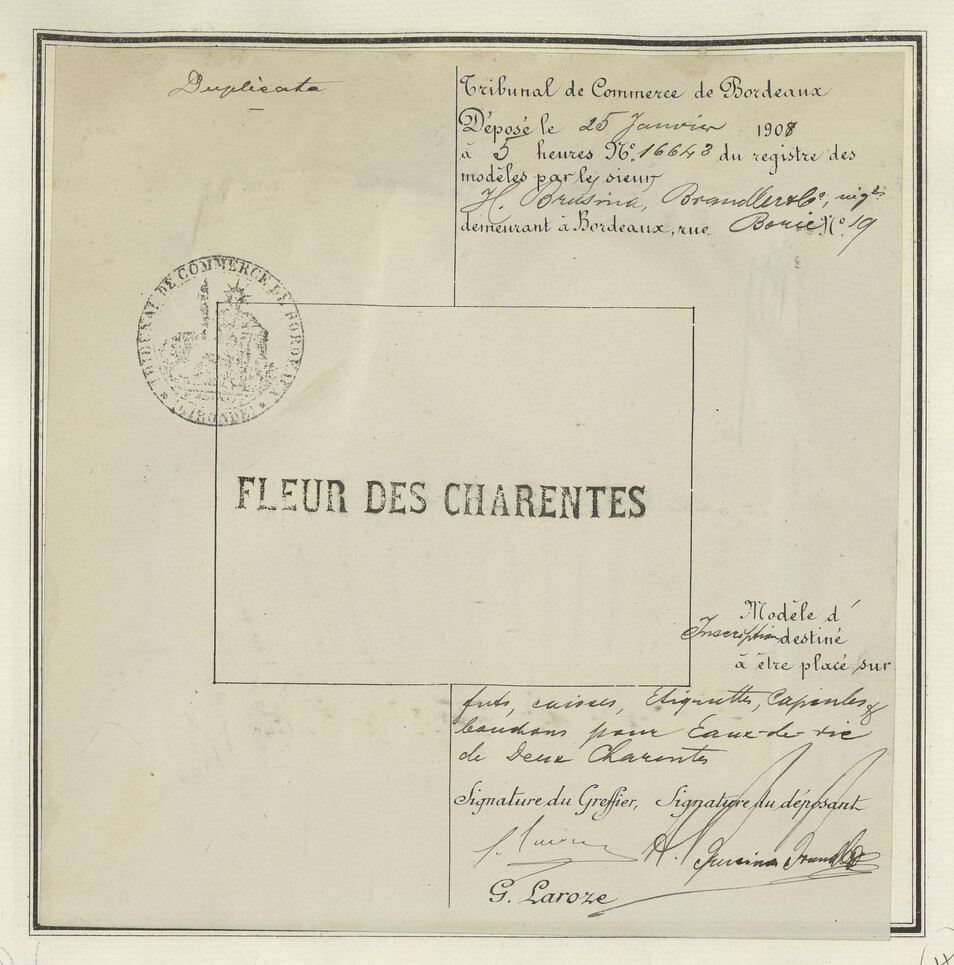 Duplicata
Tribunal de Commerce de Bordeaux
Déposé le 25 Janvier 1908
à 5 heures Nº. 16643 du registre des
modèles par le sieur
H. Brusina, Brandler & Cº, nég.ts
demeurant à Bordeaux, rue Borie Nº. 19
TRIBUNAL DE COMMERCE DE BORDEAUX
* GIRONDE *
FLEUR DES CHARENTES
Modèle d'
Inscription destiné
à être placé sur
futs, caisses, Etiquettes, Capsules &
bondons pour Eaux-de-vie
de Deux Charentes
Signature du Greffier, Signature du déposant
H. Brusina Brandler
G. Laroze